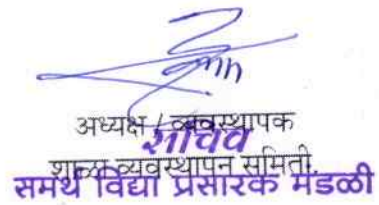 अध्यक्ष / व्यवस्थापक
सचिव
शाळा व्यवस्थापन समिती.
समर्थ विद्या प्रसारक मंडळी